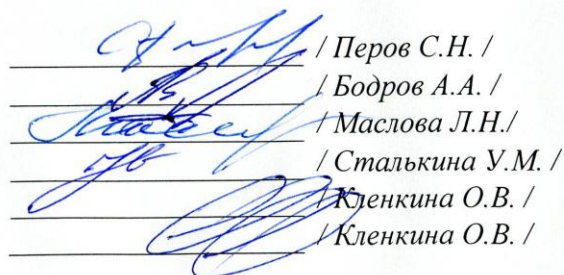 / Перов С.Н. /
/ Бодров А.А. /
/ Маслова Л.Н./
/ Сталькина У.М. /
/ Кленкина О.В. /
/ Кленкина О.В. /